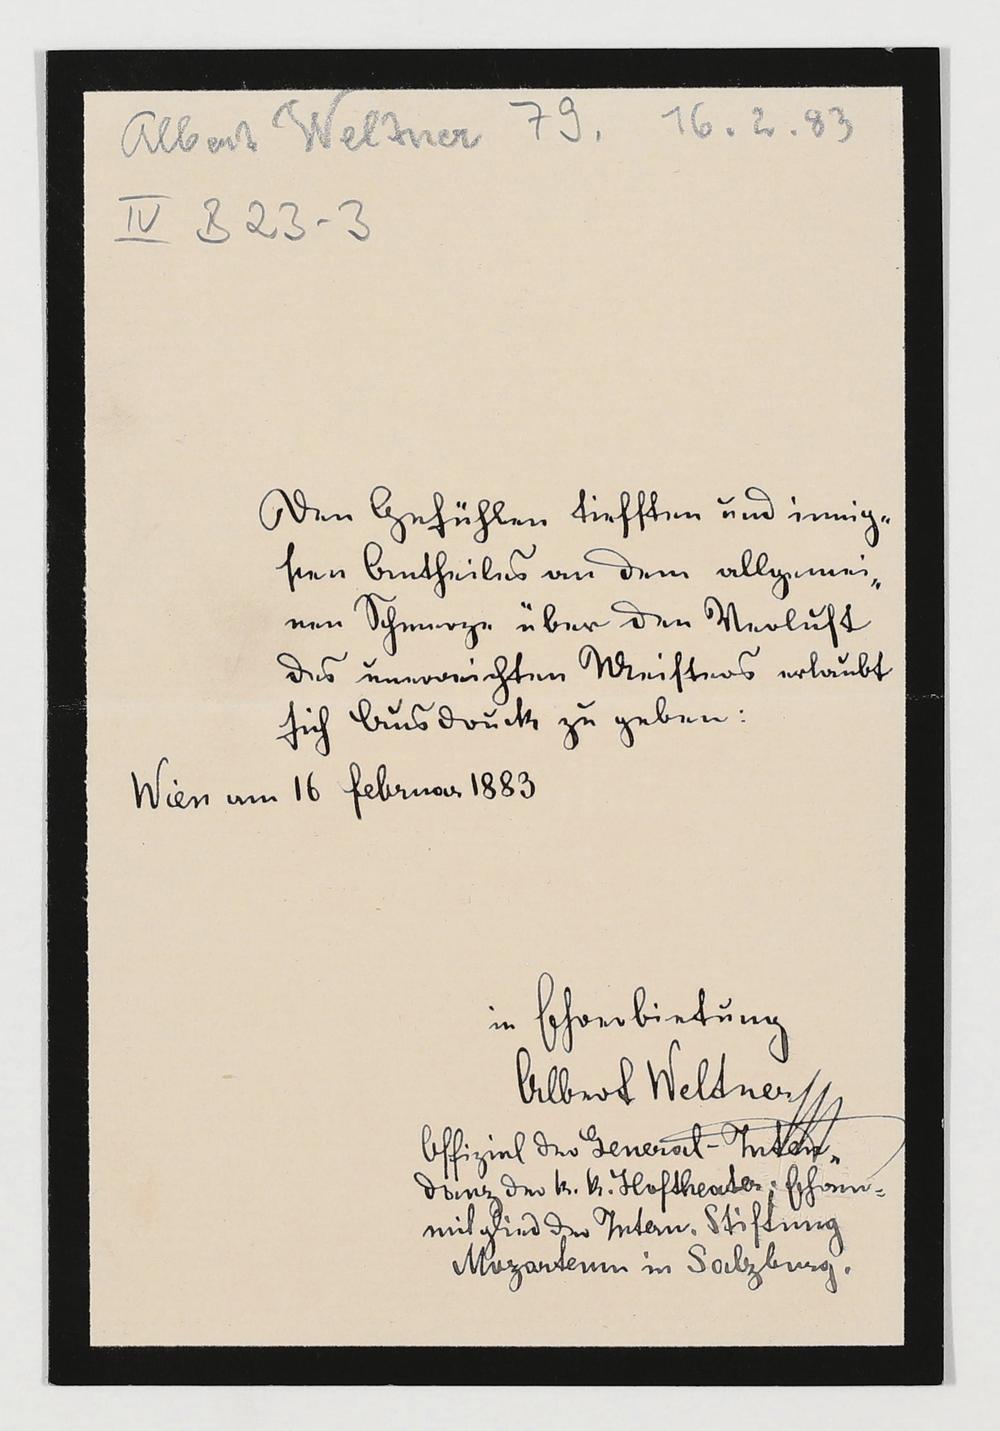 Albert Weltner 79. 16.2.83
IV B 23-3
Den Gefühlen tiefsten und innig-
sten Antheiles an dem allgemei-
nen Schmerze über den Verlust
des unerreichten Meisters erlaubt
sich Ausdruck zu geben:
Wien am 16 Februar 1883
in Ehrerbietung
Albert Weltner
Offizial der General-Inten-
danz der k. k. Hoftheater, Ehren-
mitglied der Intern. Stiftung
Mozarteum in Salzburg.